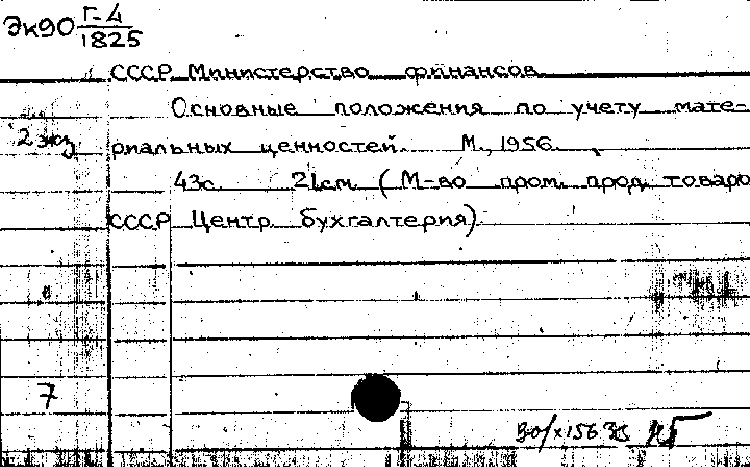 Эк90 Г-4
1825
СССР Министерство финансов
Основные положения по учету мате-
2 экз
риальных ценностей. М., 1956.
43с. 21см. (М-во пром. прод. товаро
СССР Центр. бухгалтерия)
7